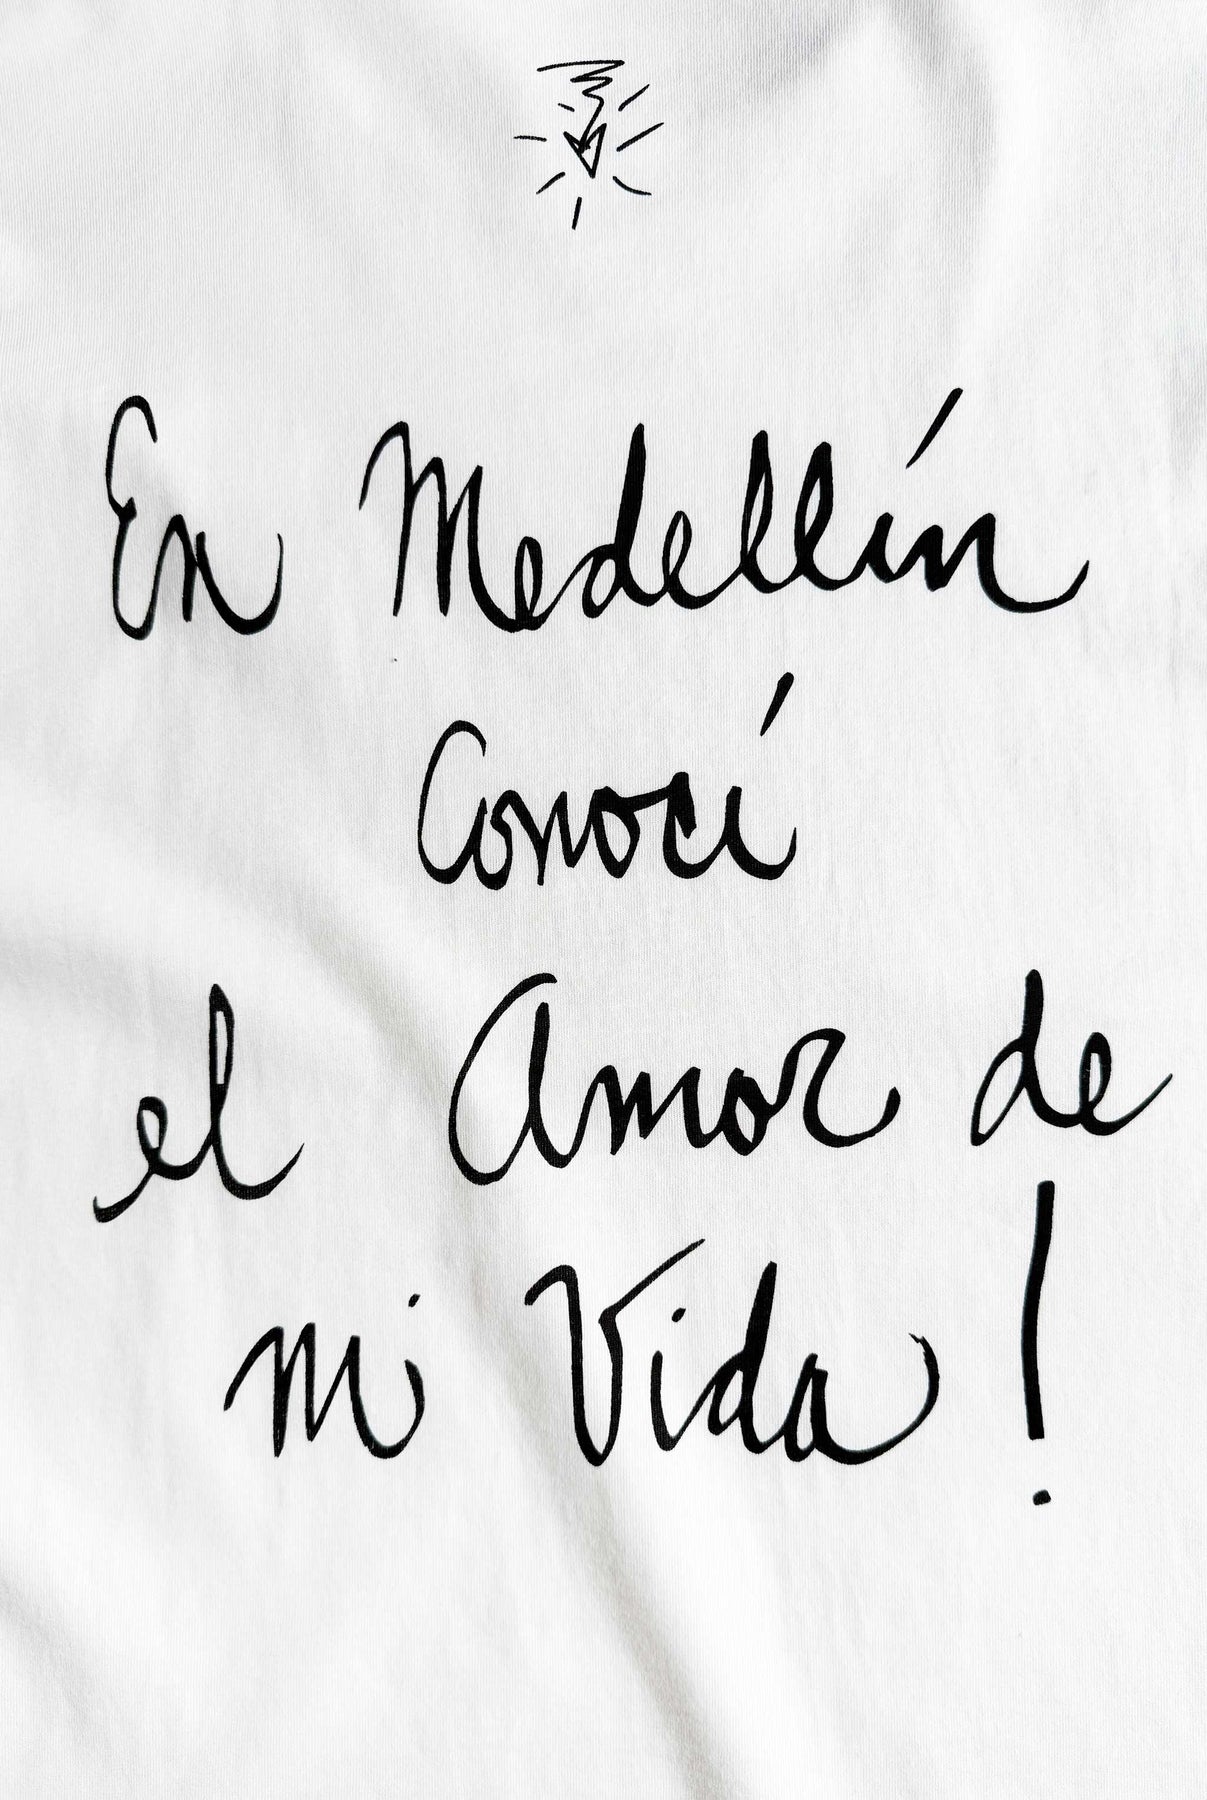 En Medellín
Conocí
el Amor de
mi Vida!